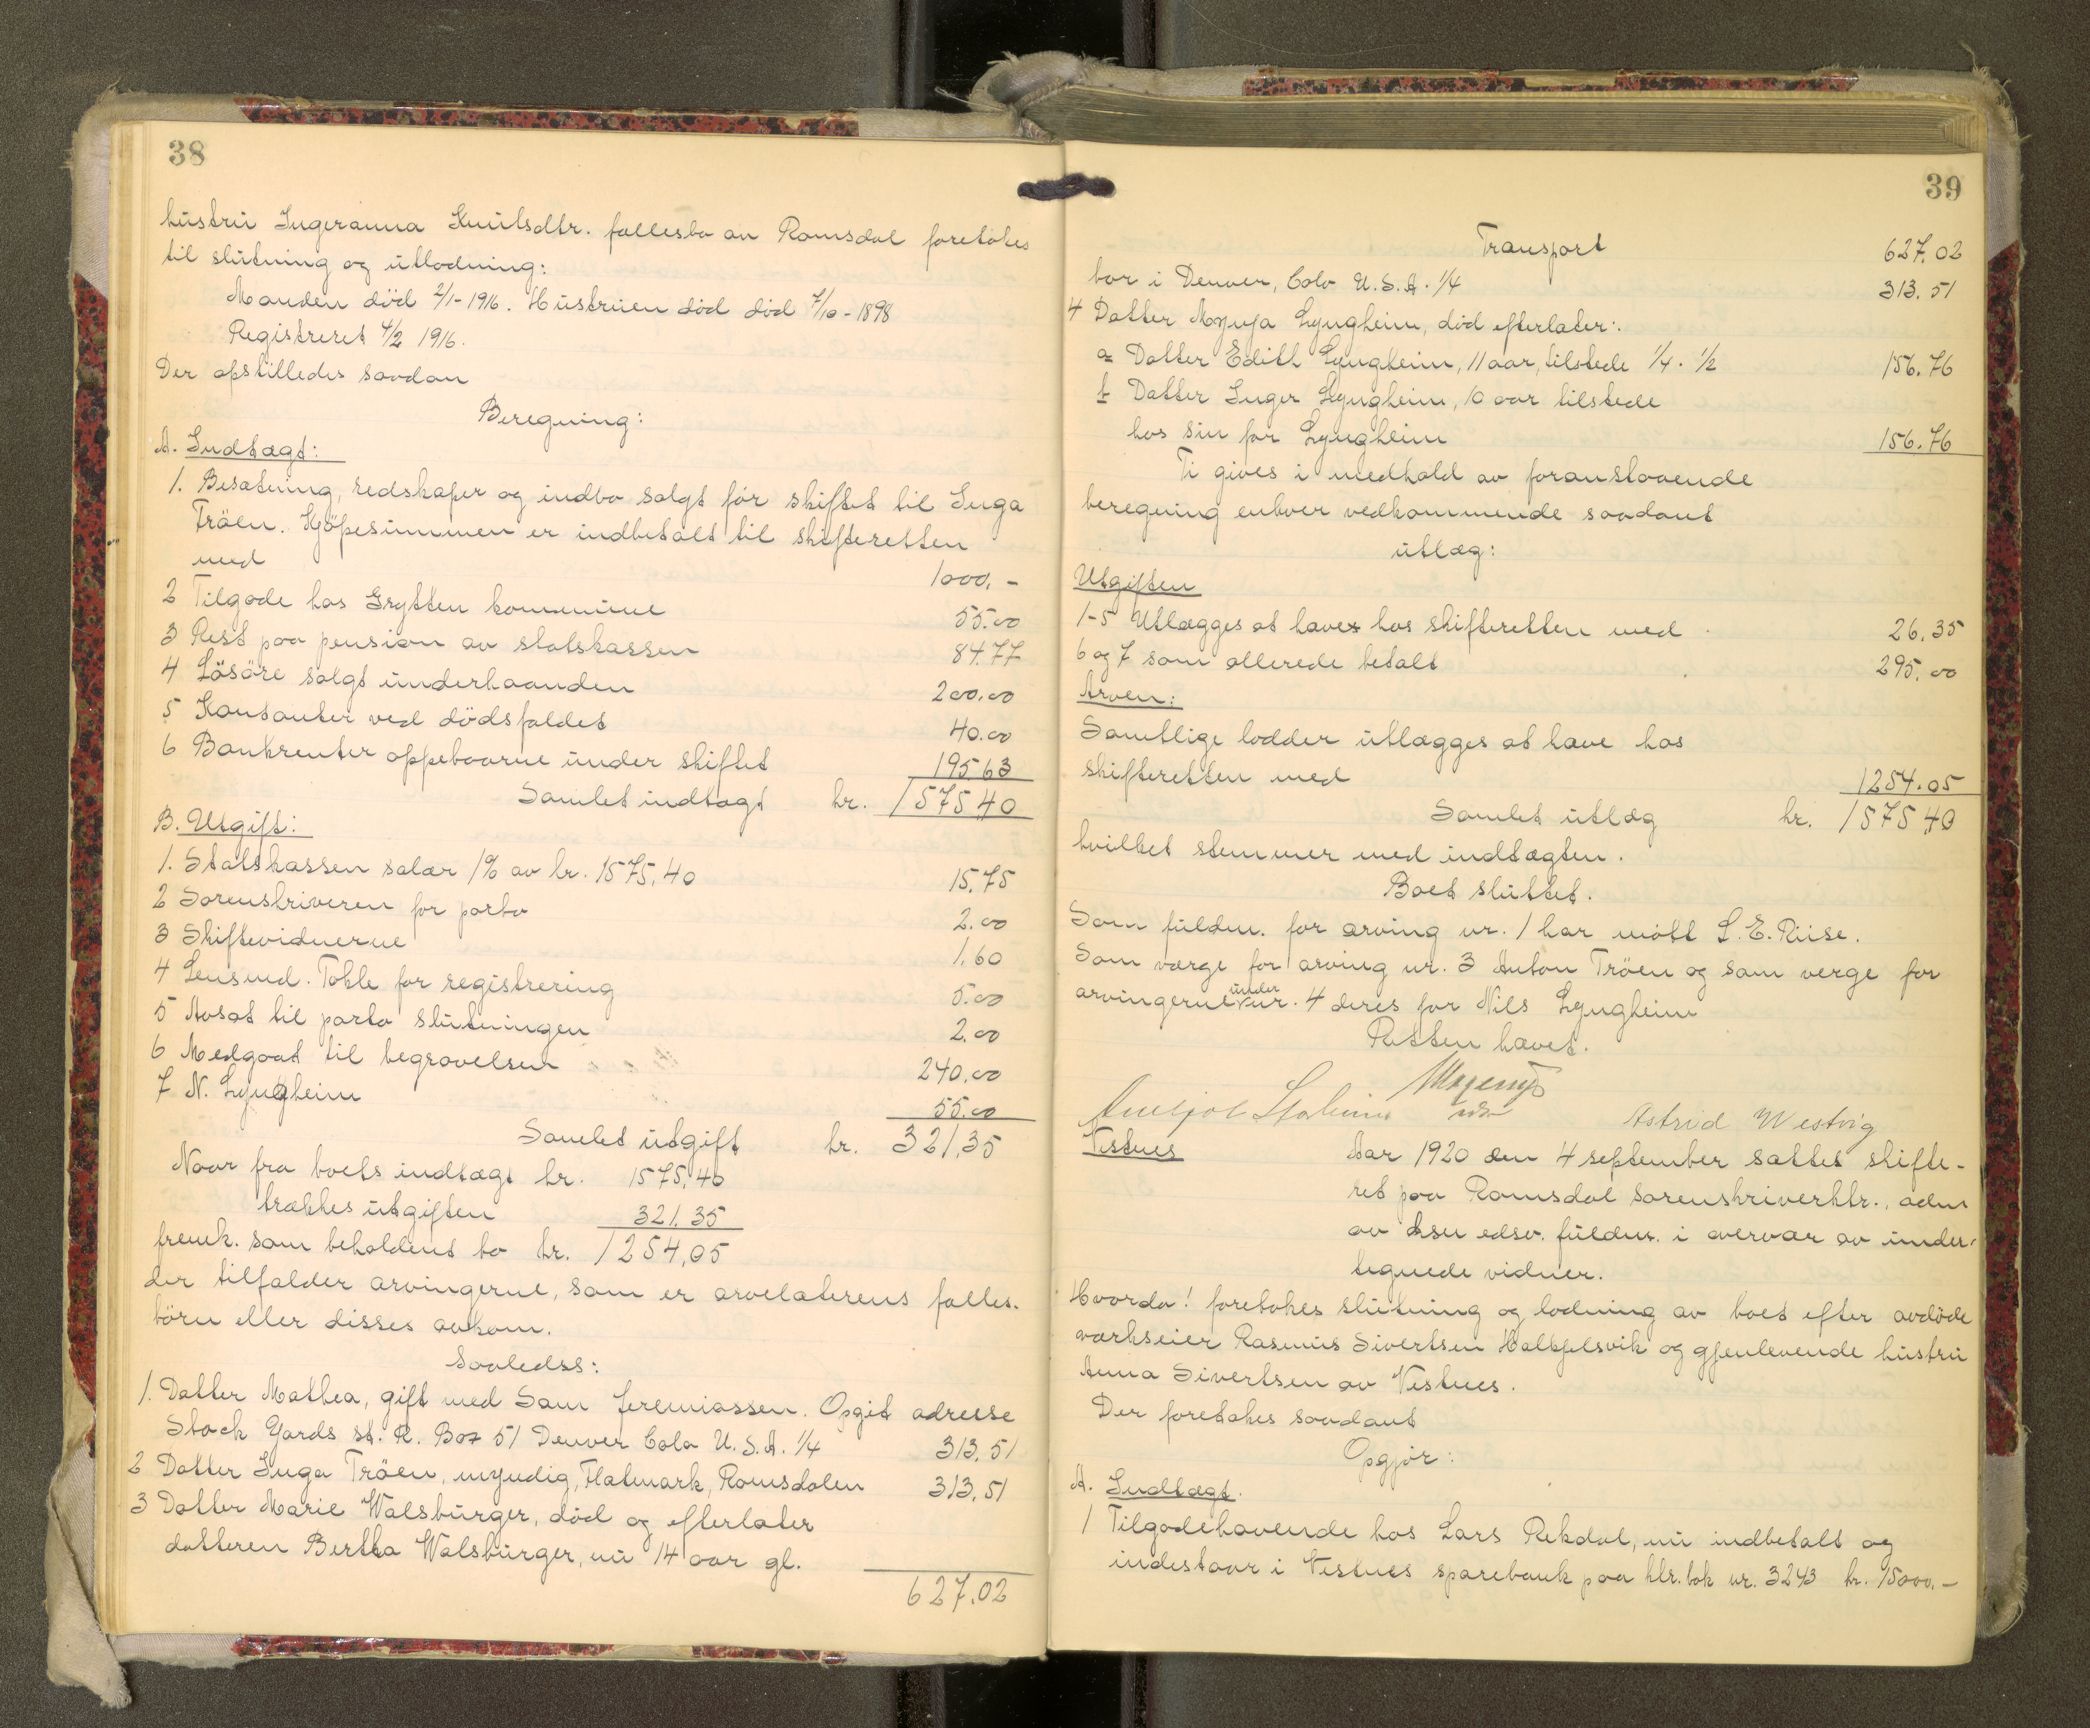 38
hustru Ingeranna Knutsdtr. fællesbo av Romsdal foretokes
til slutning og utlodning:
Manden död 2/1-1916. Hustruen död död 7/10-1898
Registreret 4/2 1916.
Der opstilledes saadan
Beregning:
A. Indtægt:
1. Besætning, redskaper og indbo solgt før skiftet til Inga
Tröen. Kjöpesummen er indbetalt til skifteretten
med 1000.-
2 Tilgode hos Grytten kommune 55.00
3 Rest paa pension av statskassen 84.77
4 Lösöre solgt underhaanden 200.00
5 Kontanter ved dödsfaldet 40.00
6 Bankrenter oppebaarne under skiftet 195.63
Samlet indtægt kr. 1575.40
B. Utgift:
1. Statskassen salær 1% av kr. 1575,40 15.75
2 Sorenskriveren for porto 2.00
3 Skiftevidnerne 1.60
4 Lensmd. Tokle for registrering 5.00
5 Avsat til porto slutningen 2.00
6 Medgaat til begravelsen 240.00
7 N. Lyngheim 55.00
Samlet utgift kr. 321,35
Naar fra boets indtægt kr. 1575,40
trækkes utgiften 321.35
fremk. som beholdent bo kr. 1254,05
der tilfalder arvingerne, som er arvelaterens fælles-
börn eller disses avkom.
Saaledes:
1. Datter Mathea, gift med Sam Jeremiassen. Opgit adresse
Stock Yards st. R. Box 51 Denver Colo U.S.A. 1/4 313.51
2 Datter Inga Tröen, myndig, Flatmark, Romsdalen 313.51
3 Datter Marie Walsburger, död og efterlater
datteren Bertha Walsburger, nu 14 aar gl.
627.02
39
Transport 627.02
bor i Denver, Colo U.S.A. 1/4 313.51
4 Datter Mynja Lyngheim, död efterlater:
a Datter Edith Lyngheim, 11 aar, tilstede 1/4 . 1/2 156.76
b Datter Inger Lyngheim, 10 aar tilstede
hos sin far Lyngheim 156.76
Ti gives i medhold av foranstaaende
beregning enhver vedkommende saadant
utlæg:
Utgiften
1-5 Utlægges at haves hos skifteretten med 26.35
6 og 7 som allerede betalt 295.00
Arven:
Samtlige lodder utlægges at have hos
skifteretten med 1254.05
Samlet utlæg kr. 1575 40
hvilket stemmer med indtægten.
Boet sluttet.
Som fuldm. for arving nr. 1 har mött L. E. Riise.
Som værge for arving nr. 3 Anton Tröen og som verge for
arvingerne under nr. 4 deres far Nils Lyngheim
Retten hævet.
Astrid Westvig
Vestnes
Aar 1920 den 4 september sattes skifte-
ret paa Romsdal sorenskriverktr., adm
av dsn edsv. fuldm. i overvær av under-
tegnede vidner.
Hvorda! foretokes slutning og lodning av boet efter avdöde
værkseier Rasmus Sivertsen Helkjelsvik og gjenlevende hustru
Anna Sivertsen av Vestnes.
Der foretokes saadant
Opgjør:
A. Indtægt.
1 Tilgodehavende hos Lars Rekdal, nu indbetalt og
indestaar i Vestnes sparebank paa ktr.bok nr. 3243 kr. 15000.-